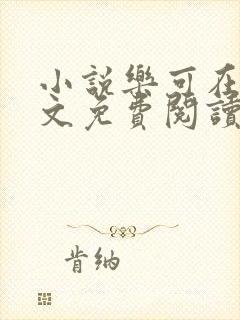 小說樂可在
文免費閱讀
肯納